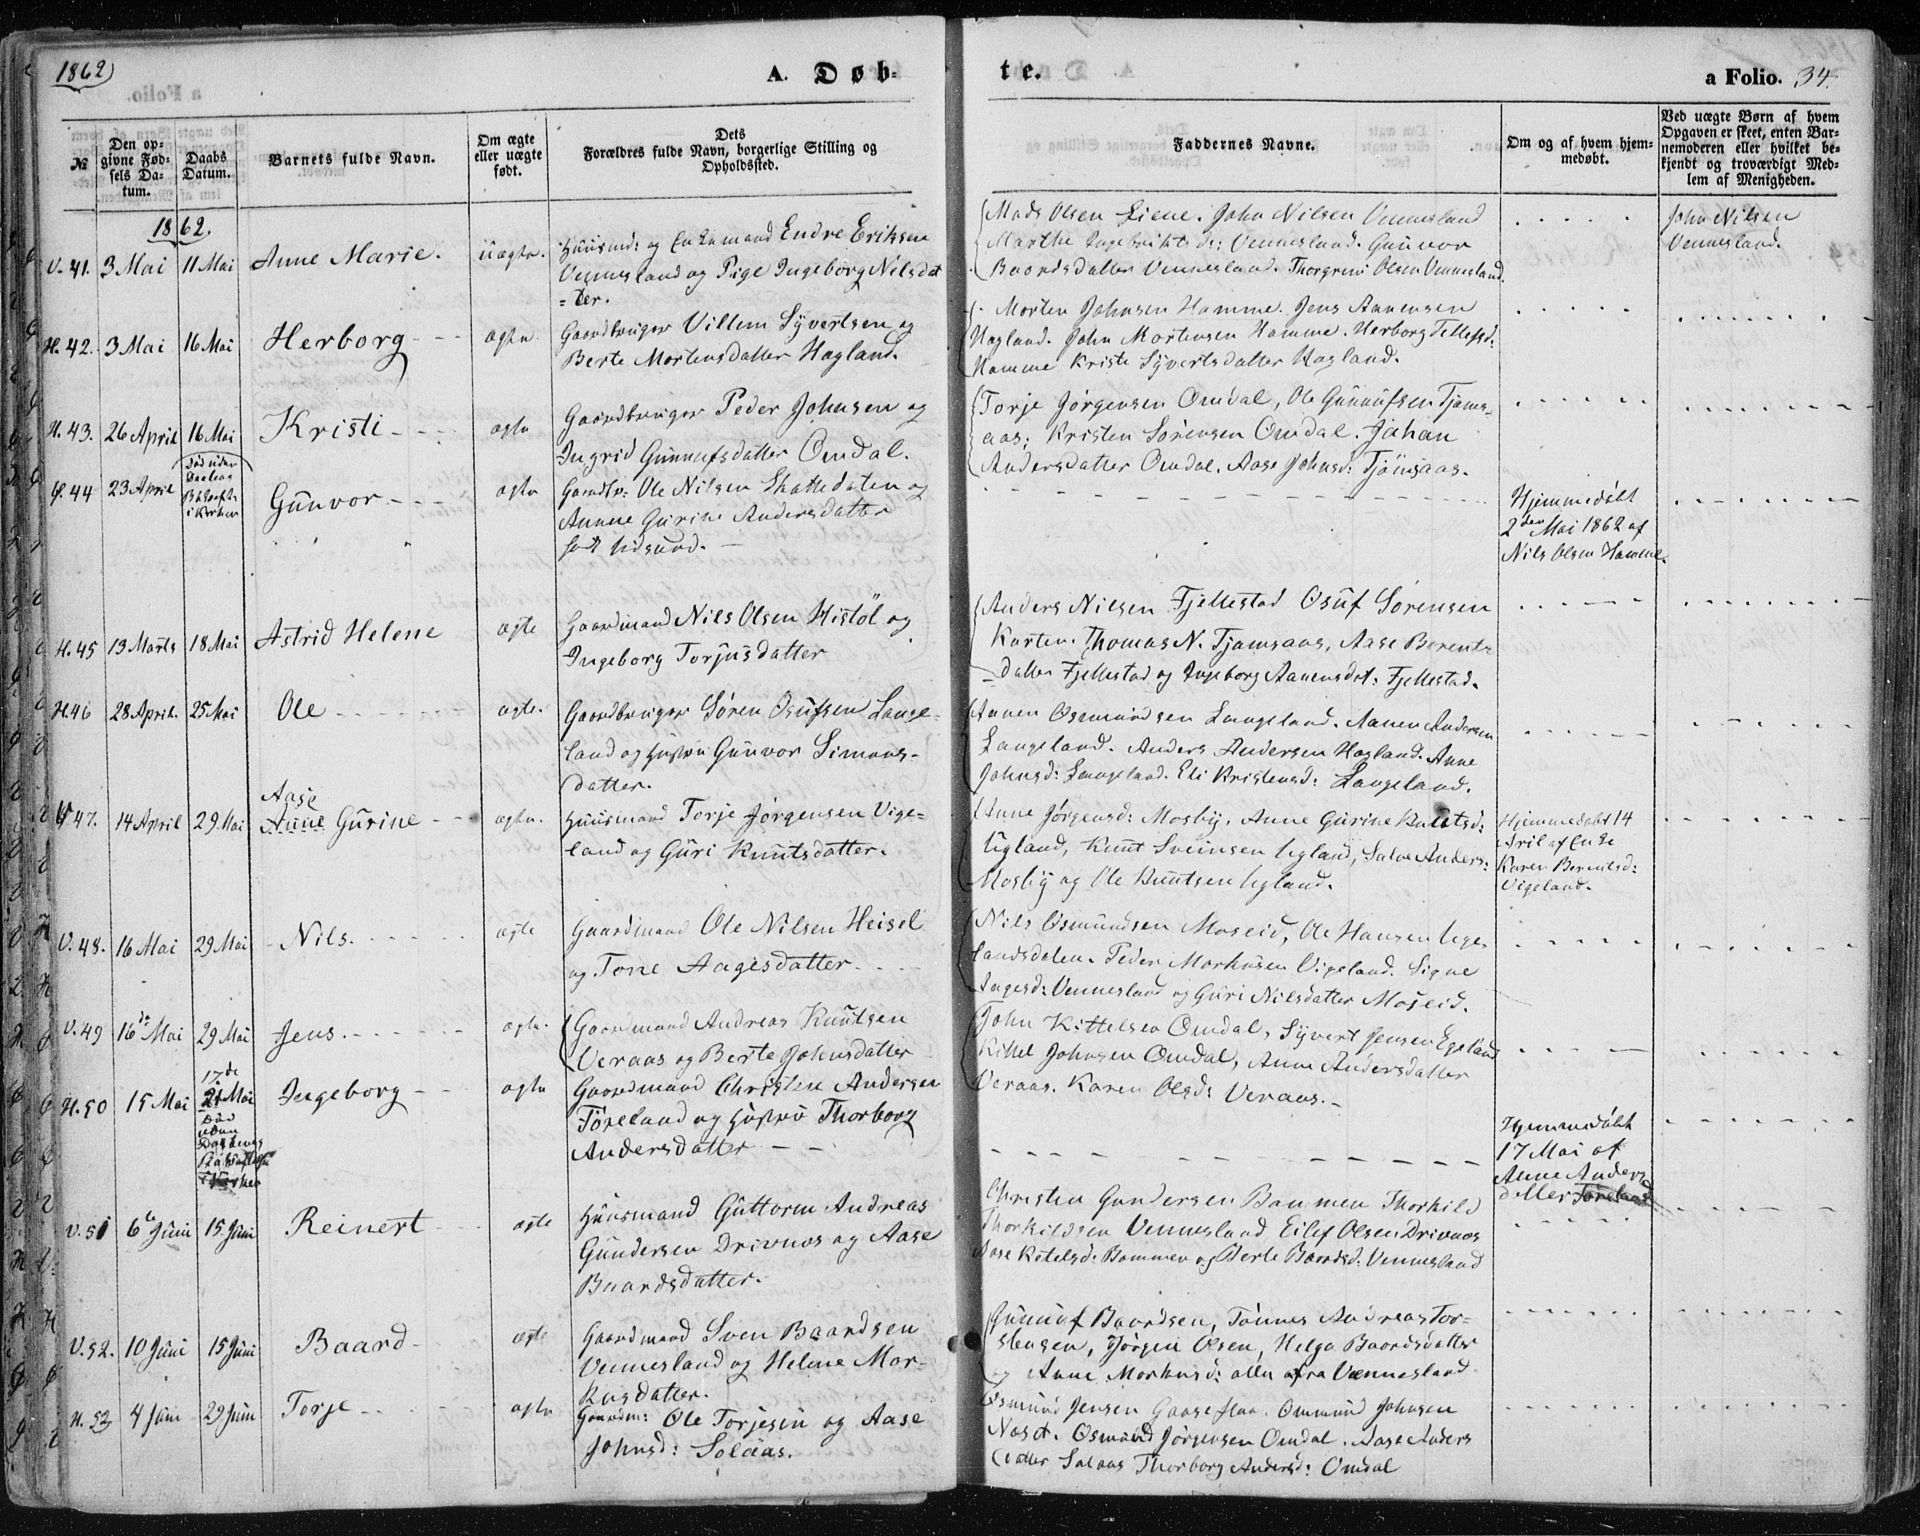 1862
A. Døb-
te.
a Folio. 34.
№
Den op-
givne Fød-
sels Da-
tum.
Daabs
Datum.
Barnets fulde Navn.
Om ægte
eller uægte
født.
Dets
Forældres fulde Navn, borgerlige Stilling og
Opholdssted.
Faddernes Navne.
Om og af hvem hjem-
medøbt.
Ved uægte Børn af hvem
Opgaven er skeet, enten Bar-
nemoderen eller hvilket be-
kjendt og troværdigt Med-
lem af Menigheden.
1862.
V. 41. 3 Mai 11 Mai Anne Marie. uægte.
Huusmd: og Enkemand Endre Eriksen
Vennesland og Pige Ingeborg Nilsdat
-ter.
Mads Olsen Liene. John Nilsen Vennesland
Marthe Ingebriktsd: Vennesland. Gunvor
Baardsdatter Vennesland. Thorgrim Olsen Vennesland.
John Nilsen
Vennesland.
H. 42. 3 Mai 16 Mai Herborg ægte.
Gaardbruger Villem Syvertsen og
Berte Mortensdatter Hagland.
Morten Johnsen Hamme. Jens Aanensen
Hagland. John Mortensen Hamme. Herborg Tellefsd:
Hamme Kriste Syvertsdatter Hagland.
H. 43. 26 April 16 Mai Kristi ægte
Gaardbruger Peder Johnsen og
Ingrid Gunnufsdatter Omdal.
Torje Jørgensen Omdal, Ole Gunnufsen Tjoms-
aas; Kristen Sørensen Omdal. Johan
Andersdatter Omdal. Aase Johnsd: Tjomsaas.
44 23 April
død uden
Daabens
Bekræft:
i Kirken
Gunvor ægte
Gaardbr: Ole Nilsen Skattedalen og
Anne Gurine Andersdatter
Hjemmedøbt
2den Mai 1862 af
Nils Olsen Hamme.
H. 45 13 Marts 18 Mai Astrid Helene ægte
Gaardmand Nils Olsen Histöl og
Ingeborg Torjusdatter
Anders Nilsen Fjellestad Osuf Sørensen
Karten. Thomas N. Tjomsaas, Aase Berents
-datter Fjellestad og Ingeborg Aanensdt: Fjellestad.
H. 46 28 April. 25 Mai Ole ægte.
Gaardbruger Søren Osufsen Lange-
land og Hustru Gunvor Simons-
datter.
Aanen Osmundsen Langeland. Aanen Andersen
Langeland. Anders Andersen Hagland. Anne
Johnsd: Langeland. Eli Kristensd: Langeland.
47. 14 April 29 Mai
Aase
Anne Gurine ægte.
Huusmand Torje Jørgensen Vige-
land og Guri Knutsdatter.
Anne Jørgensd: Mosby. Anne Gurine Knutsd:
Ugland, Knut Sveinsen Ugland, Salve Anders:
Mosby og Ole Knutsen Ugland.
Hjemmedøbt 14
April af Enke
Karen Berentsd:
Vigeland.
V. 48. 16 Mai 29 Mai Nils. ægte
Gaardmand Ole Nilsen Heisel
og Tone Aagesdatter
Nils Osmundsen Moseid, Ole Hansen Vige
landsdalen. Peder Markusen Vigeland. Signe
Aagesd: Vennesland og Guri Nilsdatter Moseid.
V. 49 16de Mai 29 Mai Jens. ægte.
Gaardmand Andreas Knutsen
Veraas og Berte Johnsdatter
John Kittelsen Omdal, Syvert Jensen Egeland
Kittel Johnsen Omdal, Anne Andersdatter
Veraas. Karen Olsd: Veraas.
H. 50 15 Mai
17de
Mai
Død
uden
Daabens
Bekræftelse
i Kirken
Ingeborg ægte
Gaardmand Christen Andersen
Føreland og Hustru Thorborg
Andersdatter
Hjemmedøbt
17 Mai af
Anne Anders
datter Føreland
V. 51 6te Juni 15 Juni Reinert ægte
Huusmand Guttorm Andreas
Gundersen Drivnes og Aase
Baardsdatter.
Christen Gundersen Bommen Thorkild
Thorkildsen Vennesland Eilef Olsen Drivnes
Aase Kitelsd: Bommen og Berte Baardsd: Vennesland
V. 52. 10 Juni 15 Juni Baard ægte
Gaardmand Sven Baardsen
Vennesland og Helene Mar-
kusdatter.
Gunuf Baardsen, Tønnes Andreas Tor-
Jørgen Olsen, Helga Baardsdatter
og Anne Markusd: alle fra Vennesland
H. 53 4 Juni 29 Juni Torje ægte
Gaardm: Ole Torjesen og Aase
Johnsd: Solaas.
Osmund Jensen Gaaseflaa. Ommund Johnsen
Næset. Osmund Jørgensen Omdal. Aase Anders
datter Solaas Thorborg Andersd: Omdal